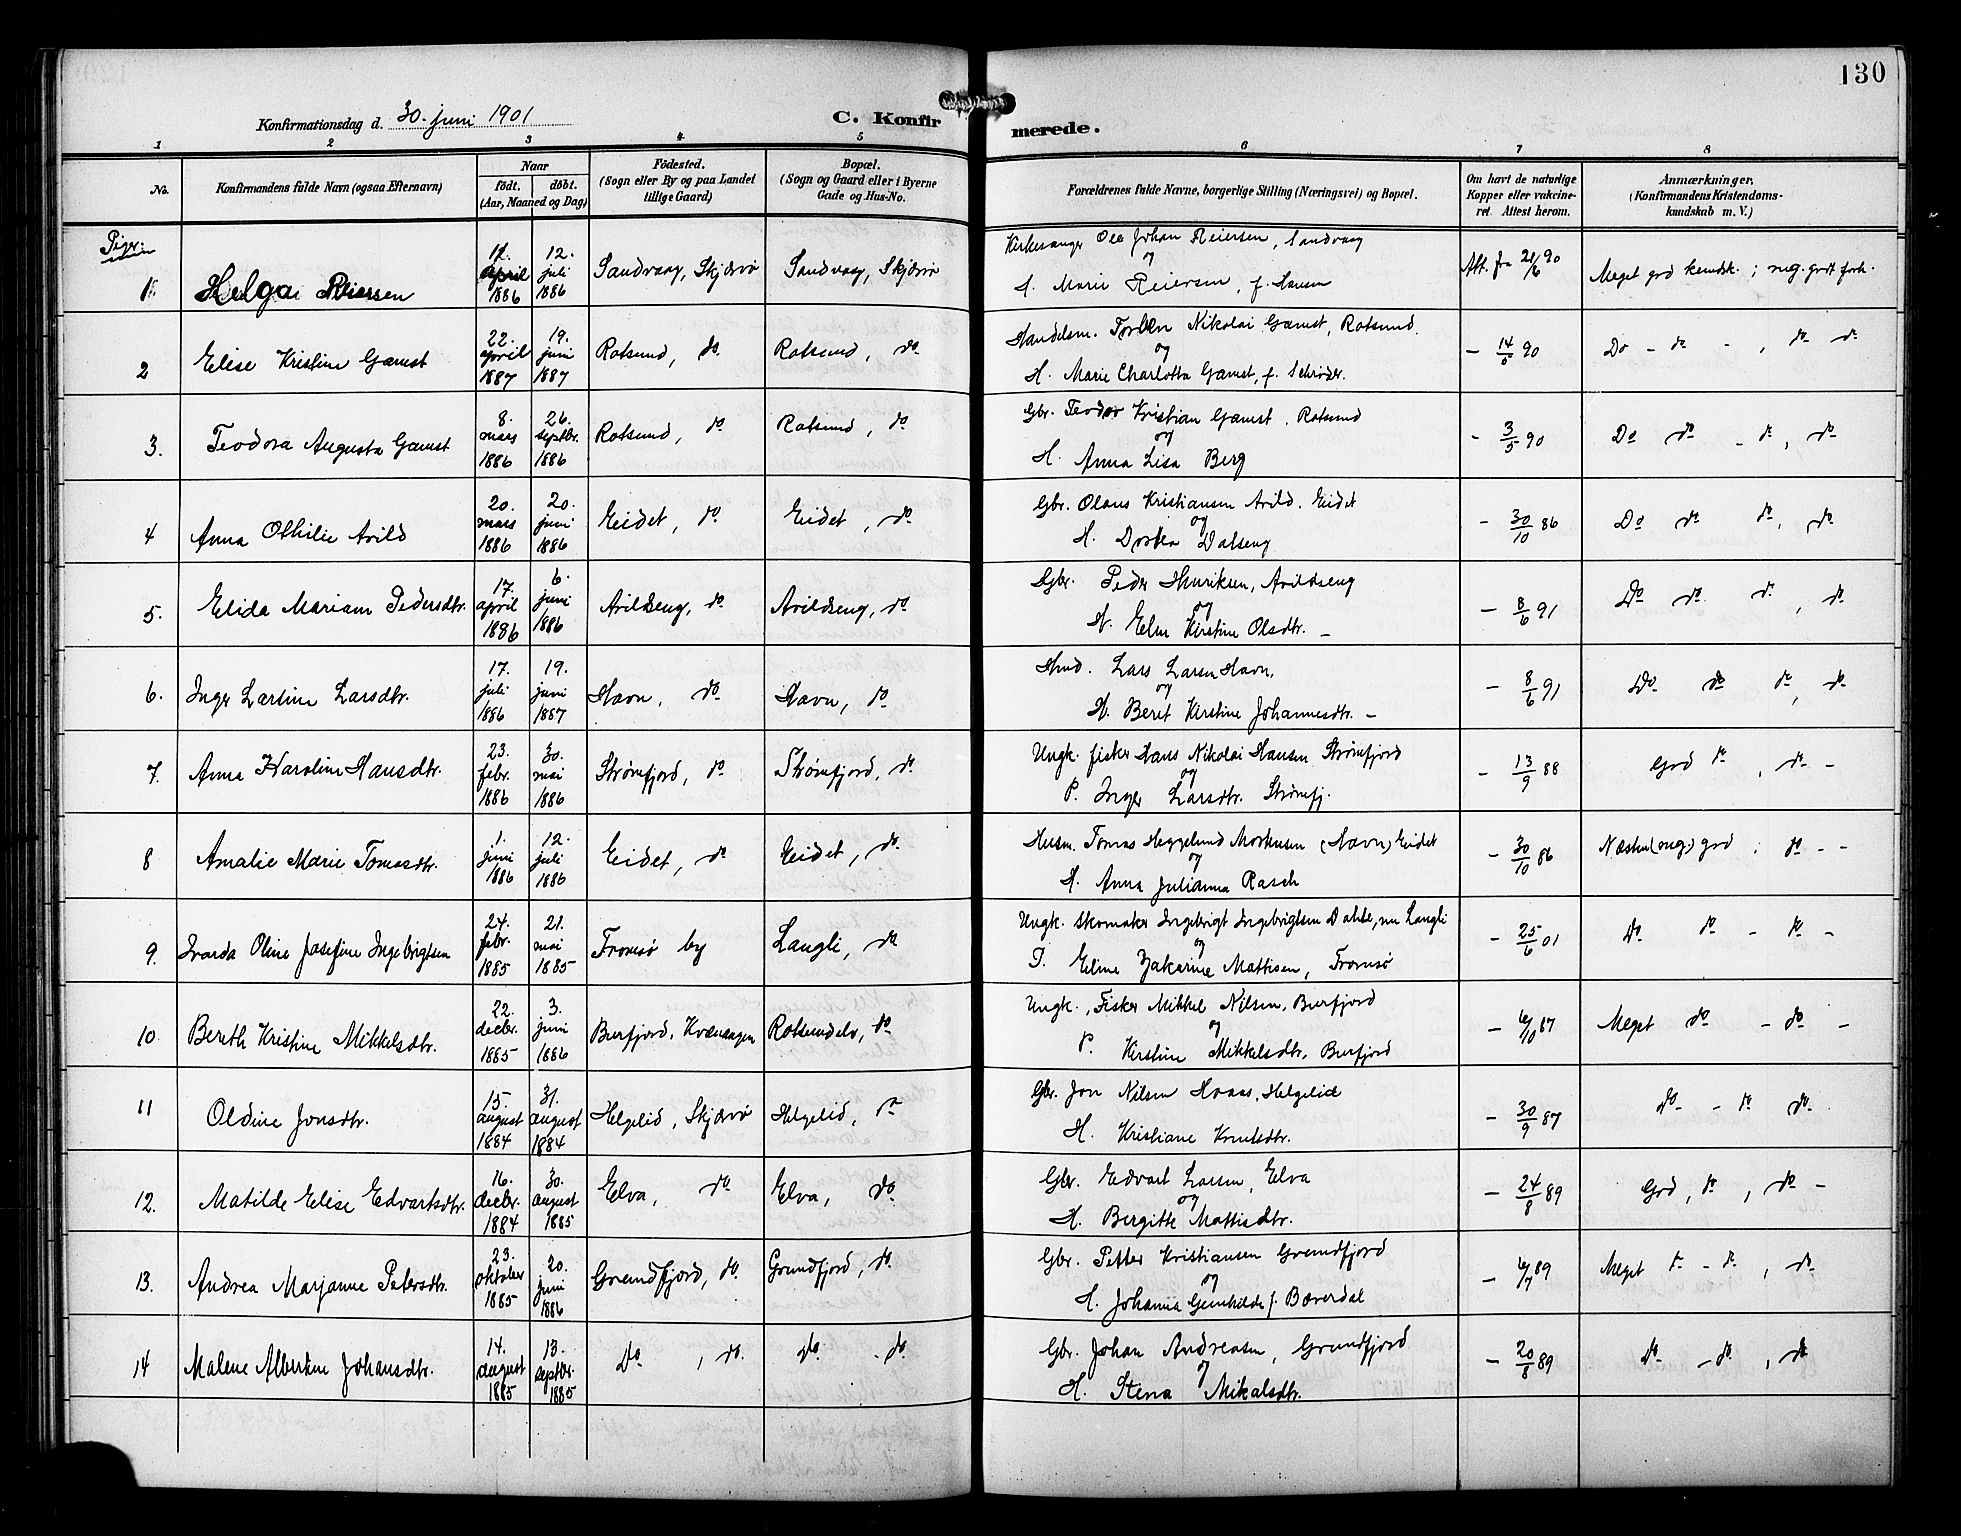 130
Konfirmationsdag d. 30. juni 1901
C. Konfirmerede.
1 2 3 4 5 6 7 8
No.
Konfirmandens fulde Navn (ogsaa Efternavn)
Naar
födt. döbt.
(Aar, Maaned og Dag)
Födested.
(Sogn eller By og paa Landet
tillige Gaard)
Bopæl.
(Sogn og Gaard eller i Byerne
Gade og Hus-No.
Forældrenes fulde Navne, borgerlige Stilling (Næringsvei) og Bopæl.
Om havt de naturlige
Kopper eller vakcine-
ret. Attest herom.
Anmærkninger,
(Konfirmandens Kristendoms-
kundskab m. V.)
Piger:
1. Helga Reiersen
april 1886
12. juli 1886
Sandvaag, Skjærvø
Sandvaag, Skjærvø
Kirkesanger Ole Johan Reiersen, Sandvaag
og
H. Marie Reiersen, f. Hansen
Att. fra 21/6 90
Meget god kundsk.; meg. godt forh.
2 Elise Kristine Gamst
22. april 1887
19. juni 1887
Rotsund, do.
Rotsund, do.
Handelsm. Nikolai Gamst, Rotsund.
og
H. Marie Charlotta Gamst, f. Schrøder.
- 14/5 90
Do - do - , do do
3. Teodora Augusta Gamst
8. mars 1886
26. septbr. 1886
Rotsund, do
Rotsund, do
Gbr. Teodor Kristian Gamst, Rotsund
og
H. Anna Lisa Berg
- 3/5 90
Do do - do, do
4 Anna Othilie Arild
20. mars 1886
20. juni 1886
Eidet, do
Eidet, do
Gbr. Olaus Kristiansen Arild, Eidet
og
H. Dorthea Dalseng
- 30/10 86
Do do do, do
5. Elida Mariane Pedersdtr.
17. april 1886
6. juni 1886
Arildseng, do
Arildseng, do
Gbr. Peder Henriksen, Arildseng
og
H. Elen Kirstine Olsdtr. -
- 8/6 91
Do do do, do
6. Inger Larsine Larsdtr.
17. juli 1886
19. juni 1887
Havn, do
Havn, do
Lars Larsen Havn,
og
H. Beret Kirstine Johannesdtr. -
- 8/6 91
Do do do, do
7. Anna Karoline Hansdtr.
23. febr. 1886
30. mai 1886
Strømfjord, do
Strømfjord, do
Ungk. fisker Hans Nikolai Hansen Strømfjord
og
P. Inger Larsdtr. Strømfj.
- 13/9 88
God do, do -
8 Amalie Marie Tomasdtr.
1. juni 1886
12. juli 1886
Eidet, do
Eidet, do
Husm. Tomas Heggelund Mortensen (Havn) Eidet
og
H. Anna Julianna Rasch
- 30/10 86
Næsten (meg.) god ; do - -
9. Oline Josefine Ingebrigtsen
24. febr. 1885
21. mai 1885
Tromsø by
Langli, do
Ungk. skomaker Ingebrigt Ingebrigtsen Dahle, nu Langli
og
P. Eline Zakarine Mattisen, Tromsø
- 25/6 01
do do - do -
10 Bereth Kristine Mikkelsdtr.
22. decbr. 1885
3. juni 1886
Burfjord, Kvænangen
Rotsundelv, do
Ungk., Fisker Mikkel Nilsen, Burfjord
og
P. Kirstine Mikkelsdtr, Burfjord
- 6/10 87
Meget do - do -
11 Oldine Jonsdtr.
15. august 1884
31. august 1884
Helgelid, Skjærvø
Helgelid, do
Gbr. Jon Nilsen Haaas, Helgelid
H. Kristiane Knutsdtr.
- 30/9 87
do - do do
12. Matilde Elise Edvartsdtr.
16. decbr. 1884
30. august 1885
Elva, do
Elva, do
Gbr. Edvart Larsen, Elva
og
H. Bergitte Mattisdtr.
- 24/8 89
God, do, do -
13. Andrea Marjanne Petersdtr.
23. oktober 1885
20. juni 1886
Grundfjord, do
Grundfjord, do
Gbr. Petter Kristiansen Grundfjord
og
H. Johanna Gunhilde f. Bæverdal
- 6/7 89
Meget do - do, do
14 Malene Albertine Johansdtr.
14. august 1885
13. septbr. 1885
Do, do.
do. do
Gbr. Johan Andreasen, Grundfjord
og
H. Stena Mikalsdtr.
- 20/8 89
do - do, do